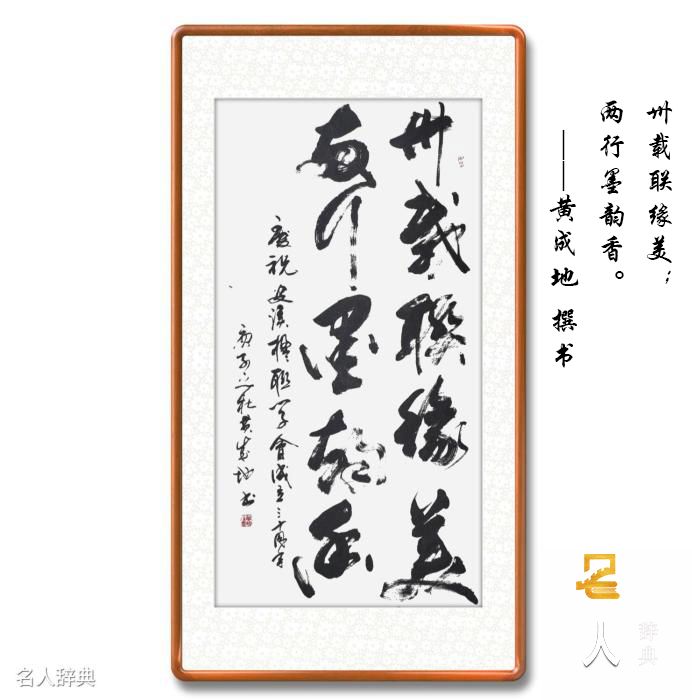 卅載聯緣美
兩行墨韵香
慶祝安溪楹联学會成立三十周年
庚子之秋黄成地书
卅载联缘美；
两行墨韵香。
——黄成地 撰书
名人辞典
名人
辞典